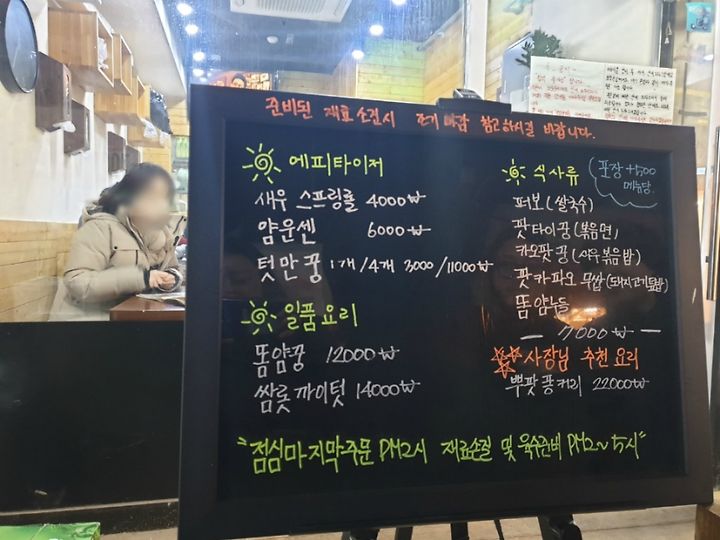 준비된 재료 소진시 조기 마감 참고하시길 바랍니다.
에피타이저
새우 스프링롤 4000₩
얌운센 6000₩
텃만꿍 1개/4개 3000/11000₩
일품요리
똠얌꿍 12000₩
쌈롯 까이텃 14000₩
식사류
포장 +500
메뉴당
퍼보 (쌀국수)
팟타이꿍 (볶음면)
카오팟꿍 (새우볶음밥)
팟카파오 무쌉 (돼지고기덮밥)
똠얌누들
— 7000₩ —
사장님 추천 요리
뿌팟퐁커리 22000₩
"점심마지막주문 PM2시 재료손질 및 육수준비 PM2~5시"